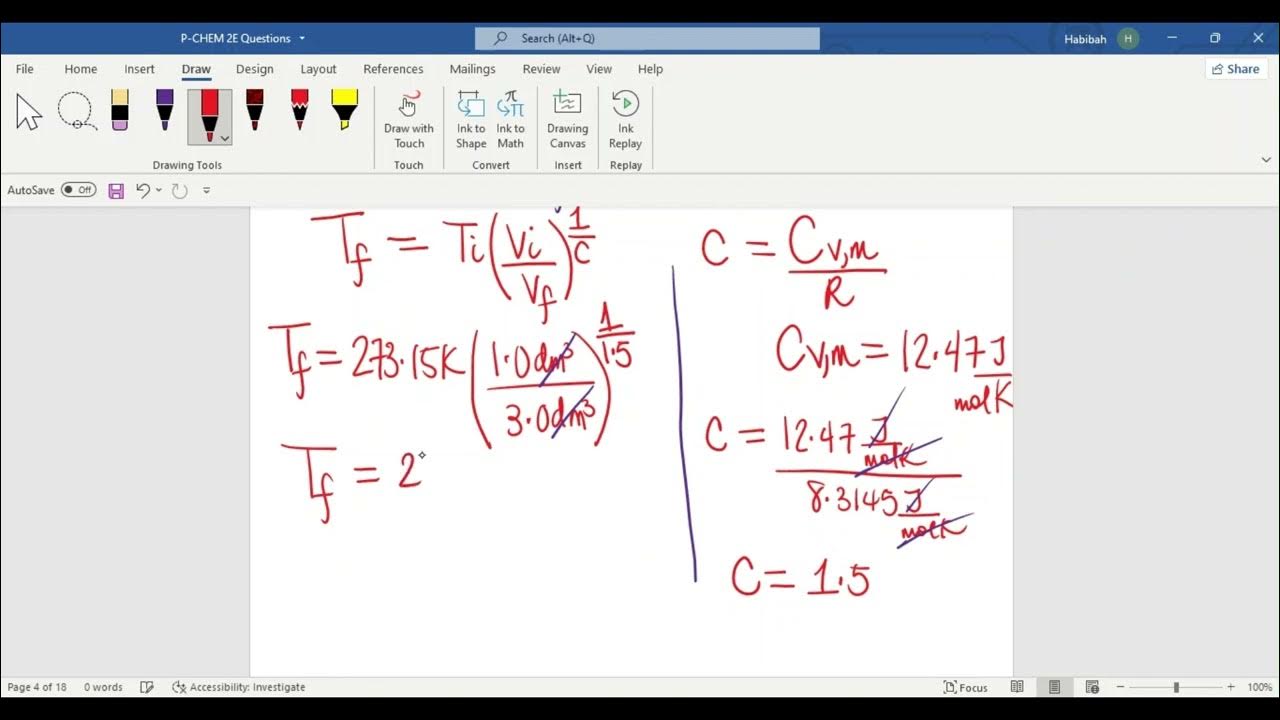 P-CHEM 2E Questions
Search (Alt+Q)
Habibah H
File Home Insert Draw Design Layout References Mailings Review View Help Share
Draw with Touch
Ink to Shape
Ink to Math
Drawing Canvas
Ink Replay
Drawing Tools Touch Convert Insert Replay
AutoSave Off
Tf = Ti (Vi/Vf)^1/C
Tf = 273.15K (1.0dm³/3.0dm³)^1/1.5
Tf = 2
C = Cv,m/R
Cv,m = 12.47 J/molK
C = 12.47 J/molK / 8.3145 J/molK
C = 1.5
Page 4 of 18 0 words Accessibility: Investigate Focus 100%